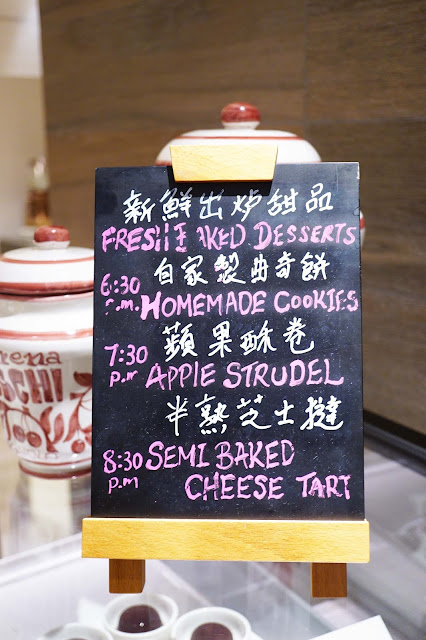 新鮮出炉甜品
FRESH BAKED DESSERTS
自家製曲奇餅
6:30 P.M. HOMEMADE COOKIES
蘋果酥卷
7:30 P.M APPLE STRUDEL
半熟芝士撻
8:30 P.M SEMI BAKED
CHEESE TART